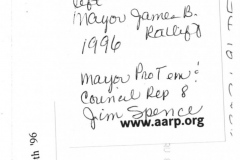 left
Mayor James B.
1996 Ratliff
Mayor ProTem:
Council Rep 8
Jim Spence
www.aarp.org
th '96